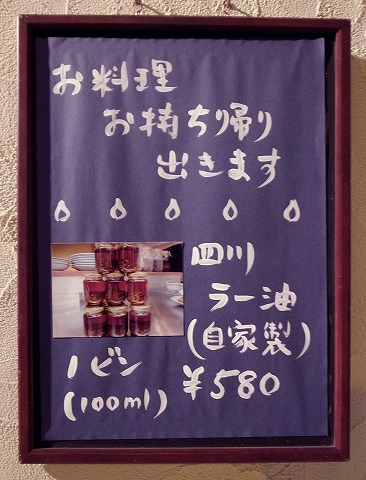 お料理
お持ち帰り
出きます
四川
ラー油
(自家製)
1ビン
(100ml)
¥580